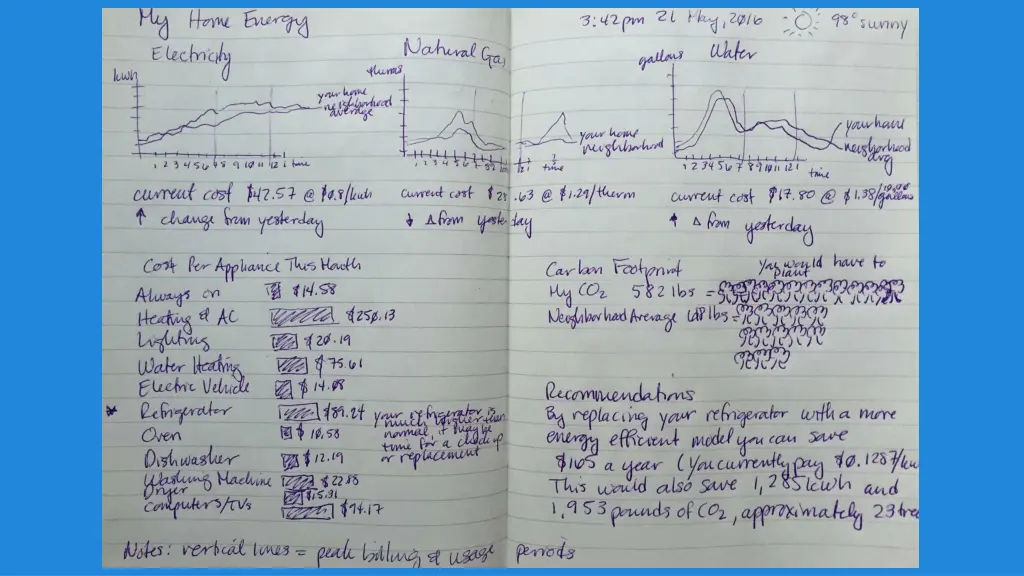 My Home Energy
3:42pm 21 May, 2016
98° sunny
Electricity
kwh
your home
neighborhood
average
1 2 3 4 5 6 7 8 9 10 11 12 1 time
current cost $42.57 @ $0.8/kwh
↑ change from yesterday
Natural Gas
therms
your home
neighborhood
time
current cost $28.63 @ $1.29/therm
↓ Δ from yesterday
Water
gallons
your house
neighborhood
avg
1 2 3 4 5 6 7 8 9 10 11 12 1 time
current cost $17.80 @ $1.38/1000 gallons
↑ Δ from yesterday
Cost Per Appliance This Month
Always on $14.58
Heating & AC $250.13
Lighting $20.19
Water Heating $75.61
Electric Vehicle $14.08
* Refrigerator $89.24
your refrigerator is
much higher than
normal it may be
time for a check up
or replacement
Oven $10.58
Dishwasher $12.19
Washing Machine $22.88
Dryer $15.31
Computers/TVs $94.17
Carbon Footprint
You would have to
plant
My CO2 582 lbs =
Neighborhood Average lbs =
Recommendations
By replacing your refrigerator with a more
energy efficient model you can save
$165 a year (You currently pay $0.1287/kw
This would also save 1,285 kwh and
1,953 pounds of CO2, approximately 23 tree
Notes: vertical lines = peak billing & usage periods